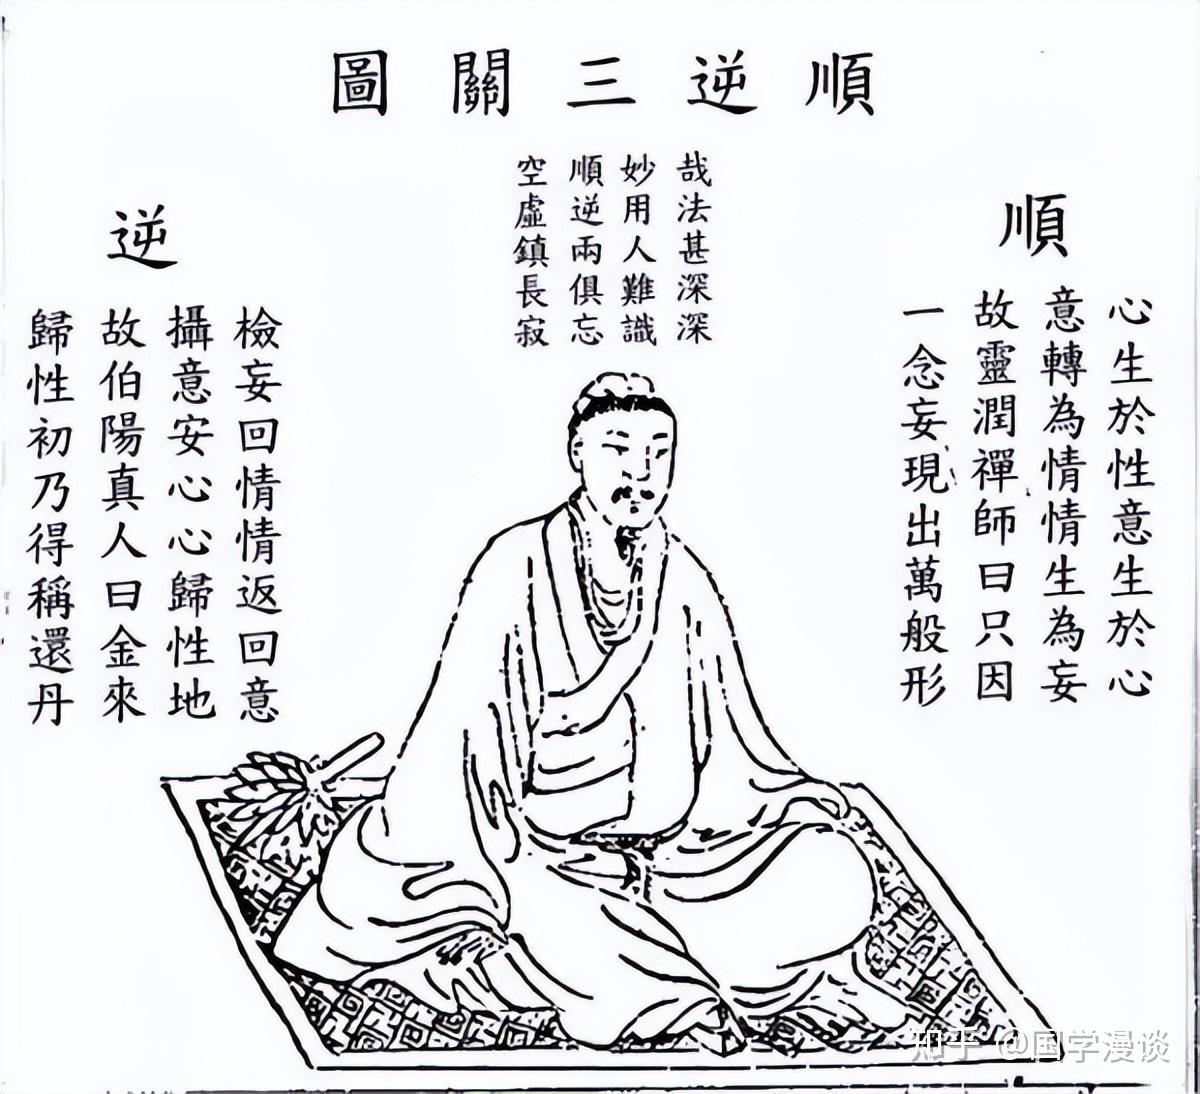 順逆三關圖
哉法甚深深
妙用人難識
順逆兩俱忘
空虛鎮長寂
順
心生於性意生於心
意轉為情情生為妄
故靈潤禪師曰只因
一念妄現出萬般形
逆
檢妄回情情返回意
攝意安心心歸性地
故伯陽真人曰金來
歸性初乃得稱還丹
知乎 @国学漫谈